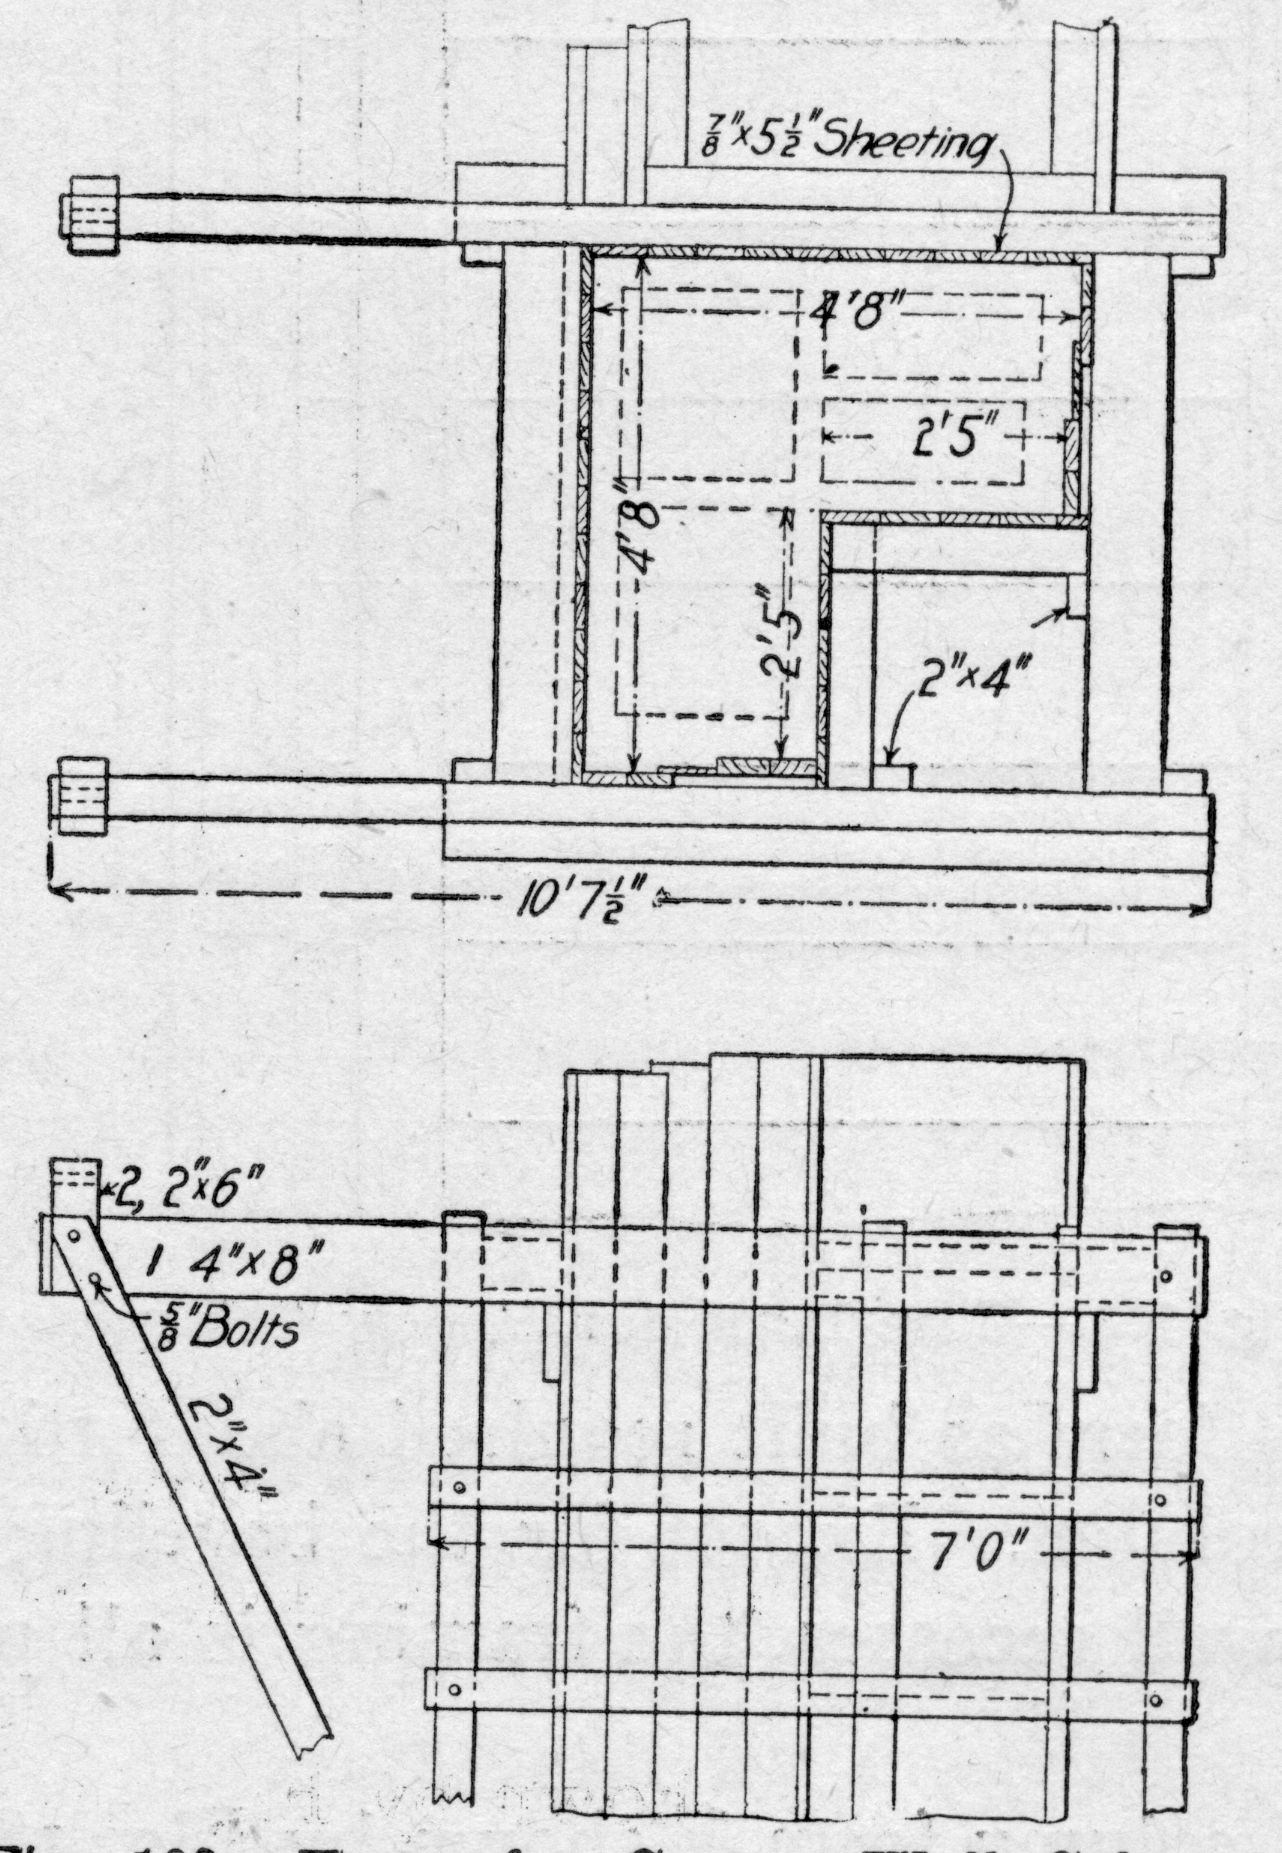 7/8"x5 1/2" Sheeting
4'8"
2'5"
4'8"
2'5"
2"x4"
10'7 1/2"
2, 2"x6"
1 4"x8"
5/8" Bolts
2"x4"
7'0"